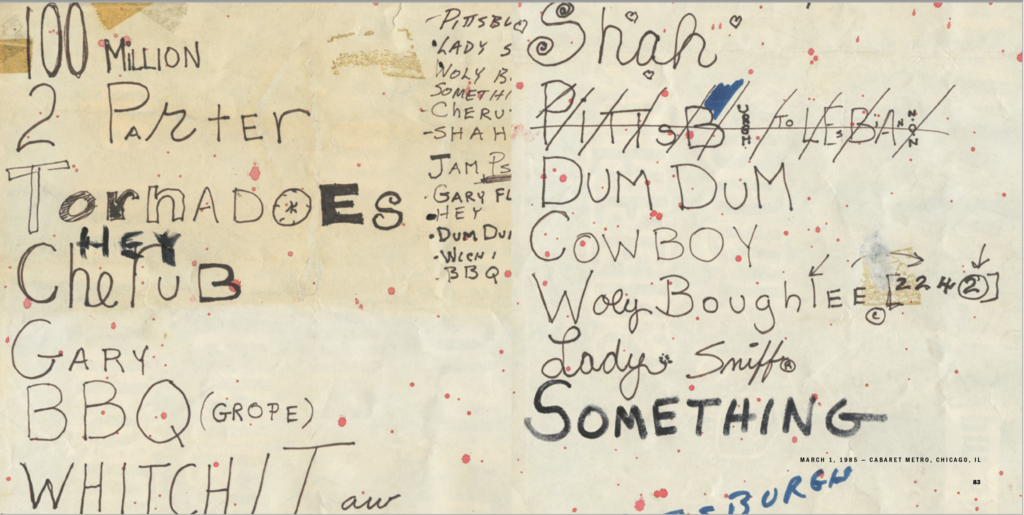 100 MILLION
2 PArtER
TornADOES
HEY
CheruB
GARY
BBQ (GROPE)
WHITCHIT aw
- PITTSBU
• LADY S
WOLY B.
SOMETHI
- CHERU
- SHAH
JAM, Ps
• GARY FL
• HEY
• DUM DU
• WICHI
• BBQ
Shah
PITTSBURGH TO LEBANON
DUM DUM
COWBOY
Woly BoughTEE © [2242]
Lady Sniff®
SOMETHING
MARCH 1, 1985 – CABARET METRO, CHICAGO, IL
83
SBURGH